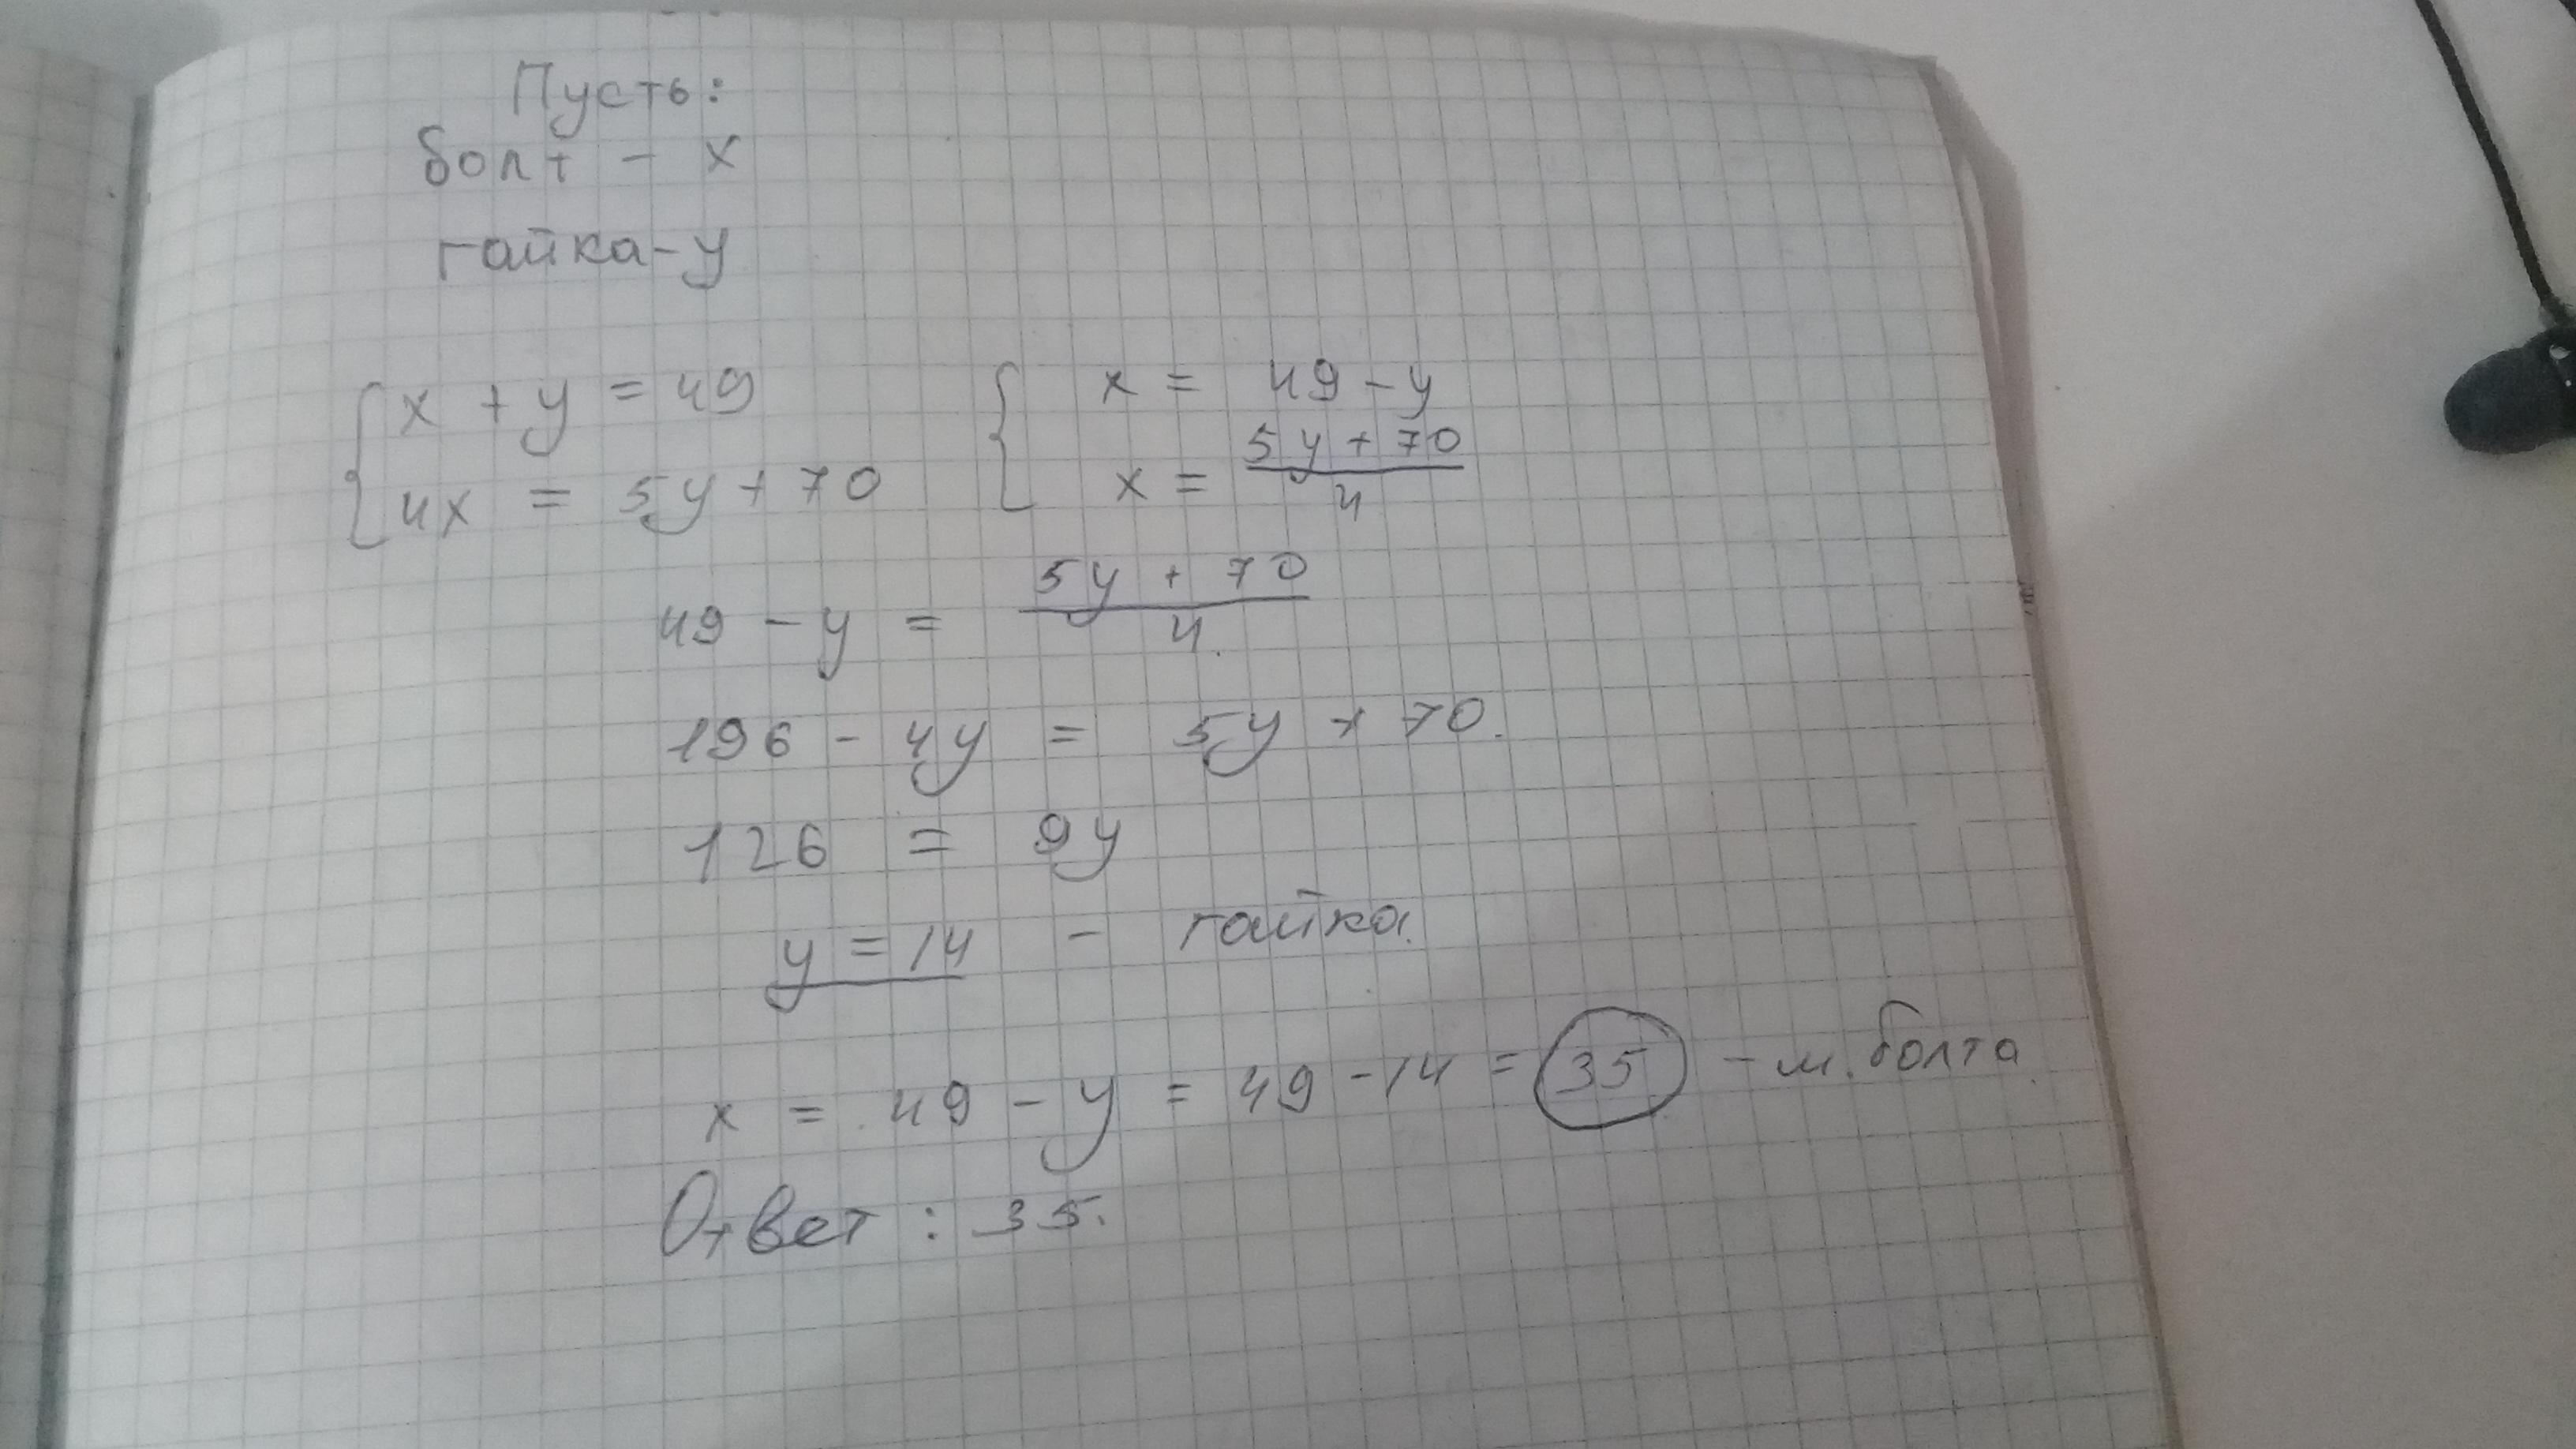 Пусть:
болт - x
гайка - y
x + y = 49
4x = 5y + 70
x = 49 - y
x = (5y + 70)/4
49 - y = (5y + 70)/4.
196 - 4y = 5y + 70.
126 = 9y
y = 14 - гайка.
x = 49 - y = 49 - 14 = 35 - м. болта.
Ответ: 35.